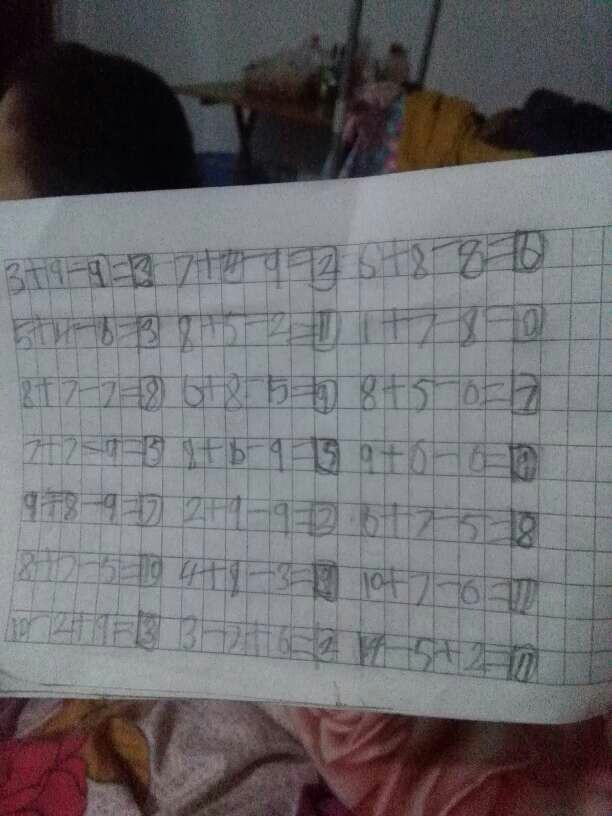 3+9-9=3 7+4-9=2 6+8-8=6
5+4-6=3 8+5-2=11 1+7-8=0
8+7-7=8 6+8-5=9 8+5-6=7
7+7-9=5 8+6-9=5 9+6-6=9
9+8-9=7 2+9-9=2 6+7-5=8
8+7-5=10 4+8-3=9 10+7-6=11
10-2+9=13 3-2+6=2 14-5+2=11